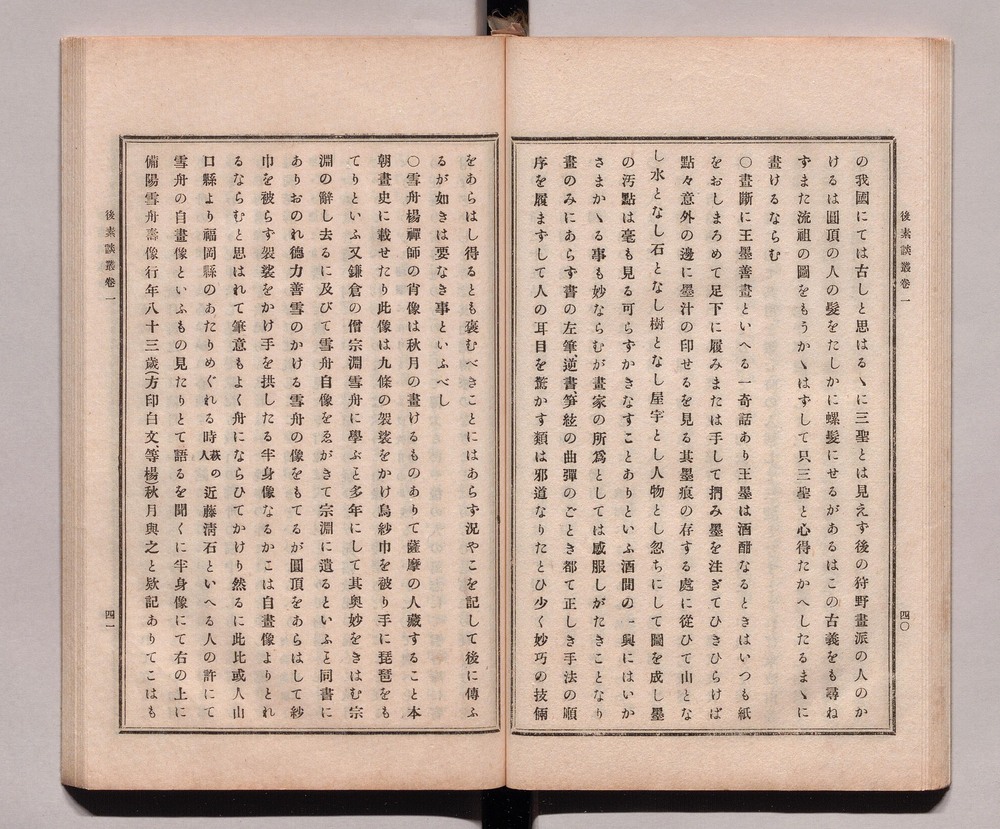 後素談叢卷一
四〇
の我國にては古しと思はるヽに三聖とは見えず後の狩野畫派の人のか
けるは圓頂の人の髮をたしかに螺髮にせるがあるはこの古義をも尋ね
すまた流祖の圖をもうかヽはずして只三聖と心得たかへしたるまヽに
畫けるならむ
〇畫斷に王墨善畫といへる一奇話あり王墨は酒酣なるときはいつも紙
をおしまろめて足下に履みまたは手して捫み墨を注ぎてひきひらけば
點々意外の邊に墨汁の印せるを見る其墨痕の存する處に從ひて山とな
し水となし石となし樹となし屋宇とし人物とし忽ちにして圖を成し墨
の汚點は毫も見る可らずかきなすことありといふ酒間の一興にはいか
さまかヽる事も妙ならむが畫家の所爲としては感服しがたきことなり
畫のみにあらず書の左筆逆書箏絃の曲彈のごとき都て正しき手法の順
序を履まずして人の耳目を驚かす類は邪道なりたとひ少く妙巧の技倆
をあらはし得るとも褒むべきことにはあらず況やこを記して後に傳ふ
るが如きは要なき事といふべし
〇雪舟楊禪師の肖像は秋月の畫けるものありて薩摩の人藏すること本
朝畫史に載せたり此像は九條の袈裟をかけ烏紗巾を被り手に琵琶をも
てりといふ又鎌倉の僧宗淵雪舟に學ぶと多年にして其奧妙をきはむ宗
淵の辭し去るに及びて雪舟自像をゑがきて宗淵に遺るといふと同書に
ありおのれ德力善雪のかける雪舟の像をもてるが圓頂をあらはして紗
巾を被らず袈裟をかけ手を拱したる半身像なるかこは自畫像よりとれ
るならむと思はれて筆意もよく舟にならひてかけり然るに此比或人山
口縣より福岡縣のあたりめぐれる時萩の人近藤淸石といへる人の許にて
雪舟の自畫像といふもの見たりとて語るを聞くに半身像にて右の上に
備陽雪舟壽像行年八十三歲(方印白文、等楊)秋月與之と欵記ありてこはも
後素談叢卷一
四一